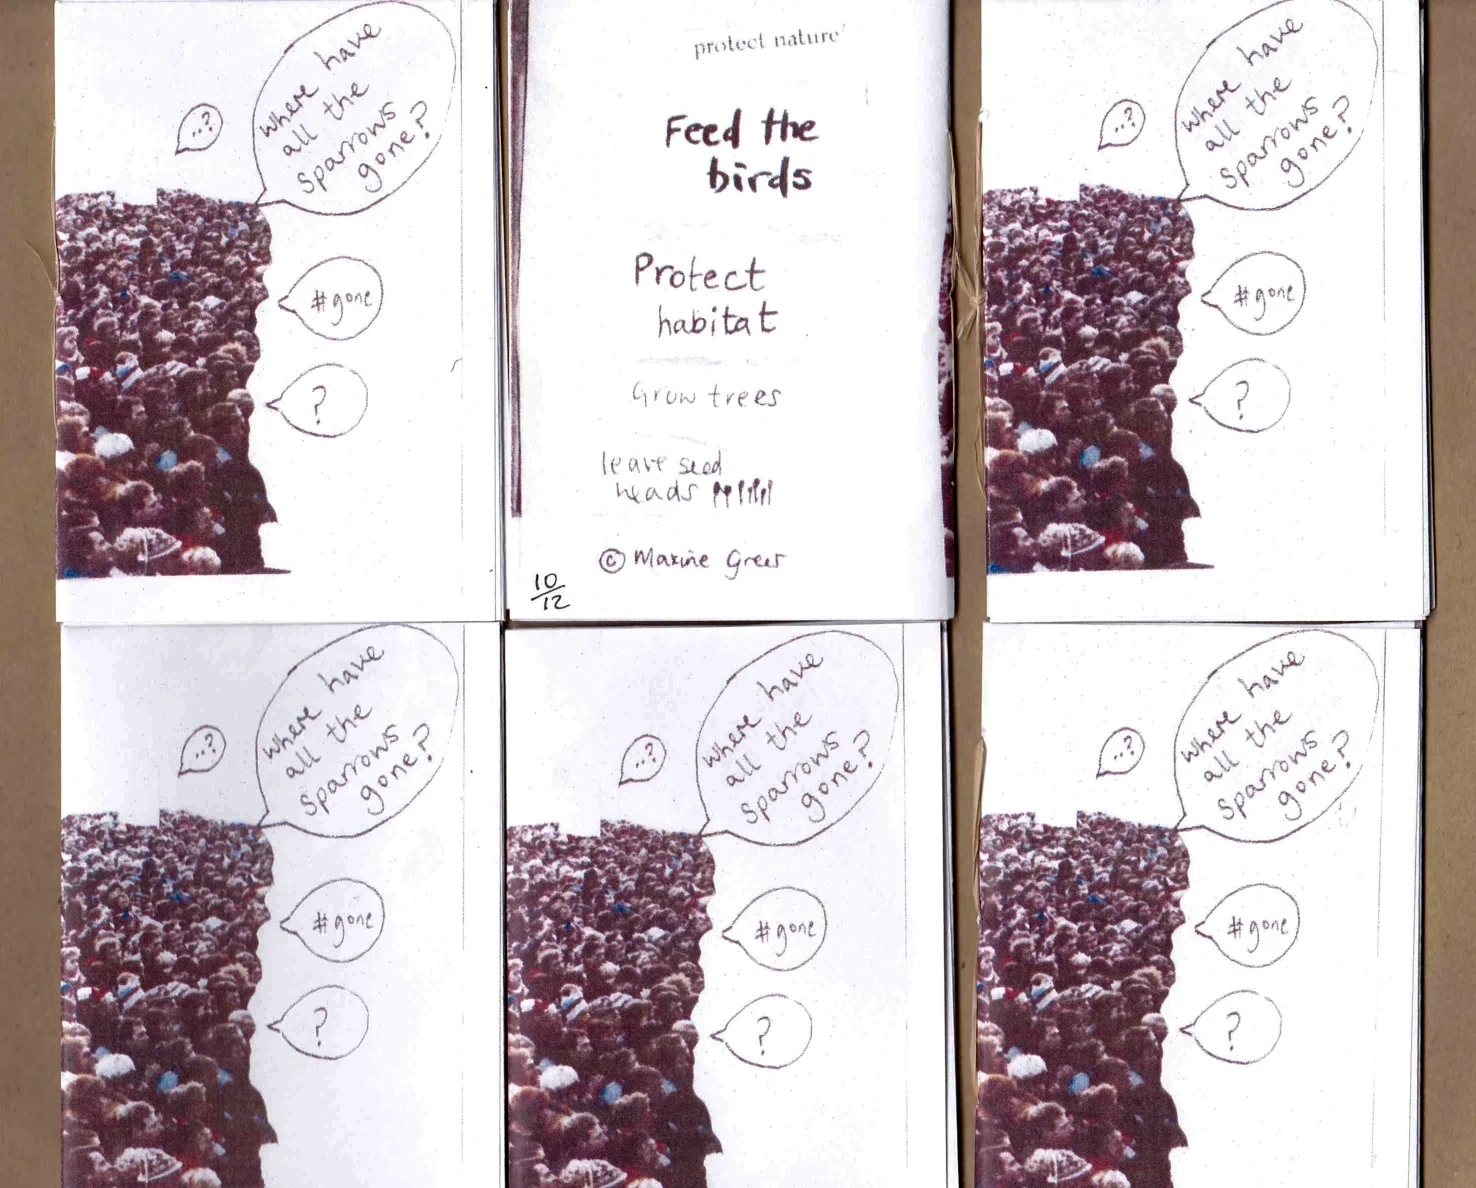 where have
all the
sparrows
gone?
...?
#gone
?
protect nature
Feed the
birds
Protect
habitat
Grow trees
leave seed
heads
© Maxine Greer
10/12
where have
all the
sparrows
gone?
...?
#gone
?
where have
all the
sparrows
gone?
...?
#gone
?
where have
all the
sparrows
gone?
...?
#gone
?
where have
all the
sparrows
gone?
...?
#gone
?